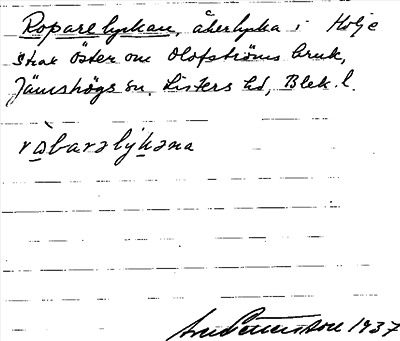 Roparelyckan, åkerlycka i Holje
strax öster om Olofströms bruk,
Jämshögs sn. Listers hd, Blek. l.
ròbaralýkana
1937